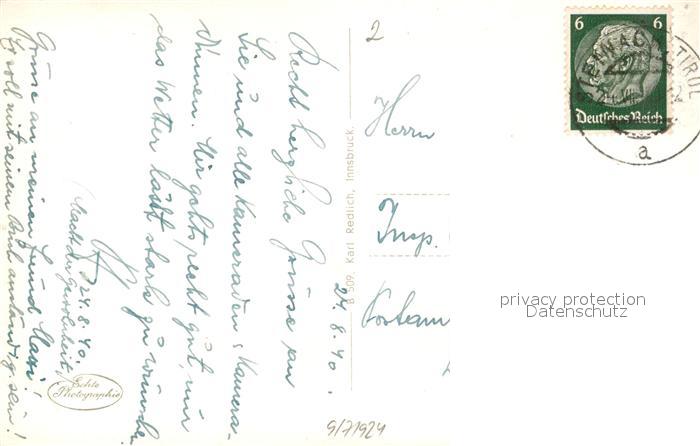 24.8.40.
Recht herzliche Grüsse an
Sie und alle Kameraden & Kamera-
dinnen. Mir gehts recht gut, nur
das Wetter lässt stark zu wünschen.
24.8.40.
(Macht der Gewohnheit)
Grüsse an meinen Freund
Er soll mit seinem anständig sein!
Echte
Photographie
B 509. Karl Redlich, Innsbruck.
2
Herrn
Insp.
Postam
6 6
Deutsches Reich
STEINACH TIROL
a
privacy protection
Datenschutz
9/71924